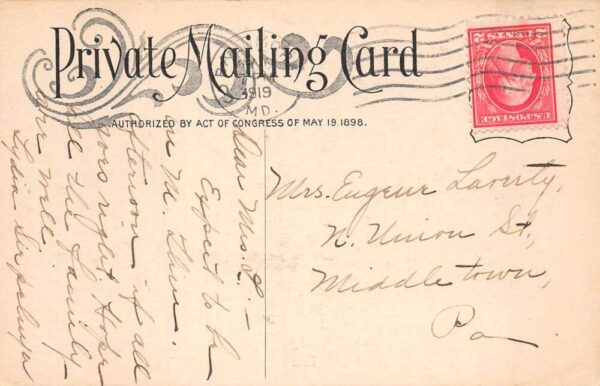 Private Mailing Card
AUTHORIZED BY ACT OF CONGRESS OF MAY 19. 1898.
1919
MD.
U.S. POSTAGE
2 CENTS 2
Dear Mrs. L: —
Expect to be
in M. Thur.
afternoon if all
goes right. Hope
all the family
are well.
Lydia
Mrs. Eugene Laverty,
N. Union St,
Middletown,
Pa